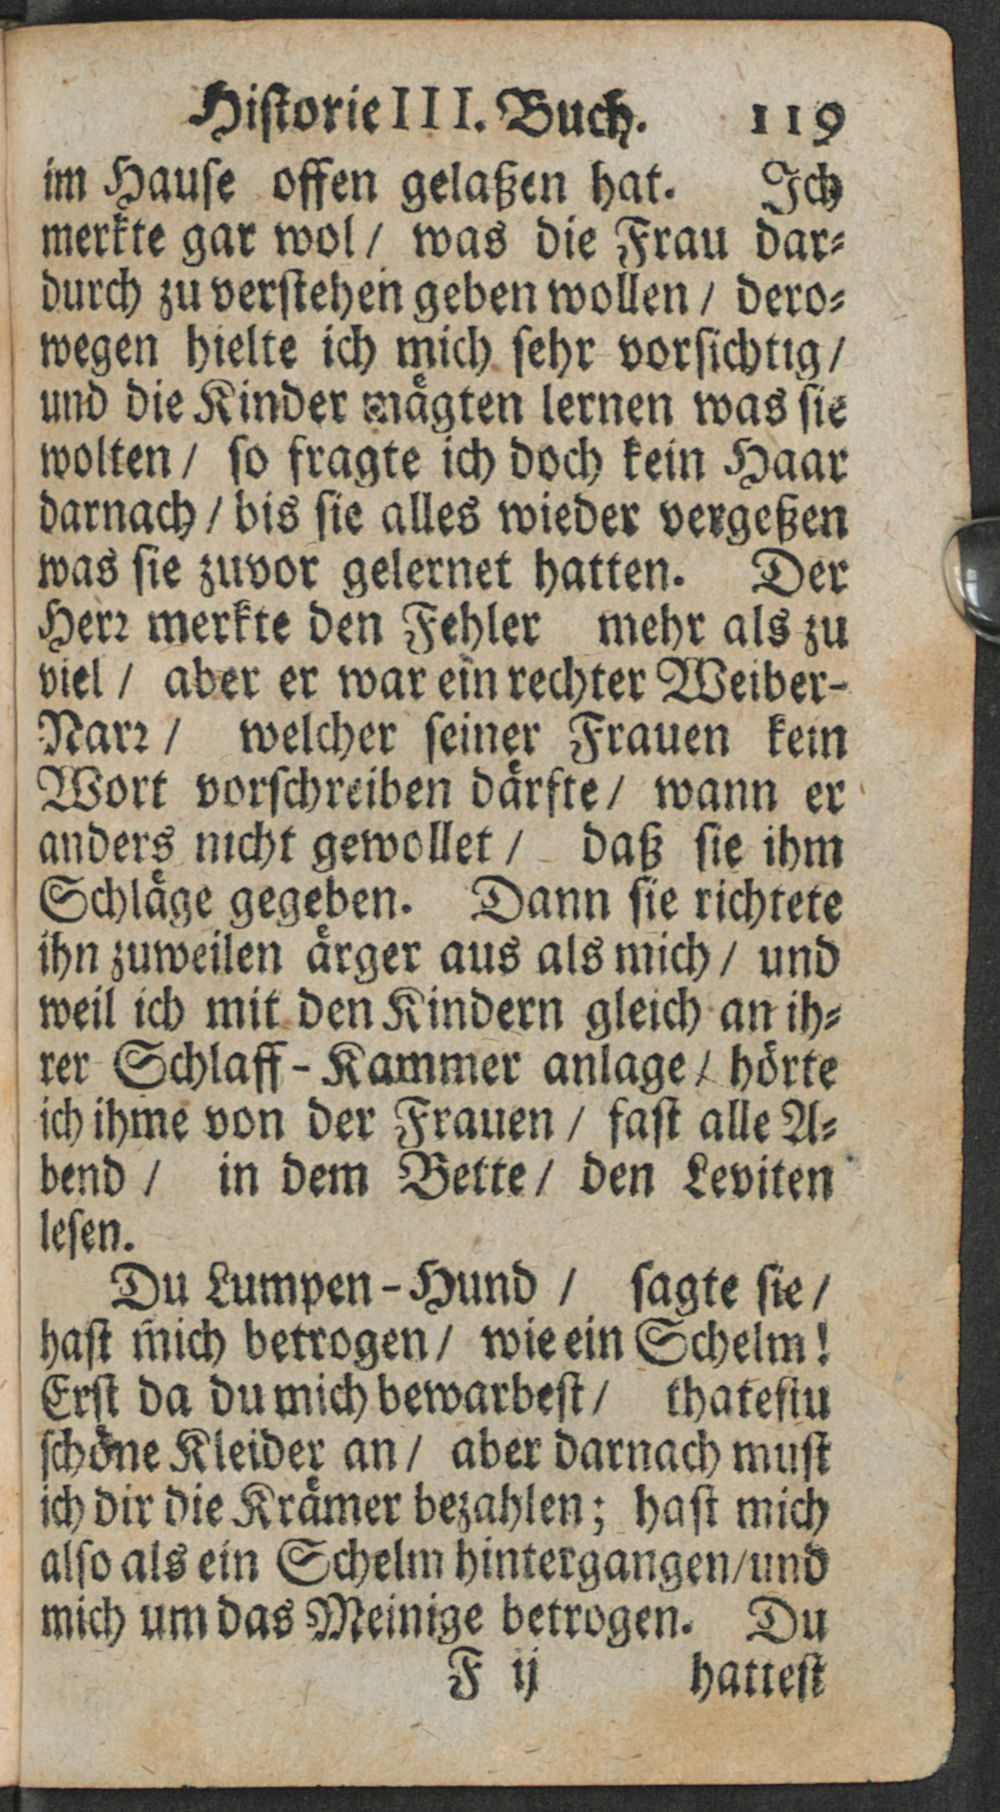 Hiſtorie III. Buch. 119
im Hauſe offen gelaßen hat. Ich
merkte gar wol / was die Frau dar⸗
durch zu verſtehen geben wollen / dero⸗
wegen hielte ich mich ſehr vorſichtig /
und die Kinder maͤgten lernen was ſie
wolten / ſo fragte ich doch kein Haar
darnach / bis ſie alles wieder vergeßen
was ſie zuvor gelernet hatten. Der
Herꝛ merkte den Fehler mehr als zu
viel / aber er war ein rechter Weiber-
Narꝛ / welcher ſeiner Frauen kein
Wort vorſchreiben daͤrfte / wann er
anders nicht gewollet / daß ſie ihm
Schlaͤge gegeben. Dann ſie richtete
ihn zuweilen aͤrger aus als mich / und
weil ich mit den Kindern gleich an ih⸗
rer Schlaff-Kammer anlage / hoͤrte
ich ihme von der Frauen / faſt alle A⸗
bend / in dem Bette / den Leviten
leſen.
Du Lumpen-Hund / ſagte ſie /
haſt mich betrogen / wie ein Schelm!
Erſt da du mich bewarbeſt / thateſtu
ſchoͤne Kleider an / aber darnach muſt
ich dir die Kraͤmer bezahlen; haſt mich
alſo als ein Schelm hintergangen / und
mich um das Meinige betrogen. Du
F ij hatteſt